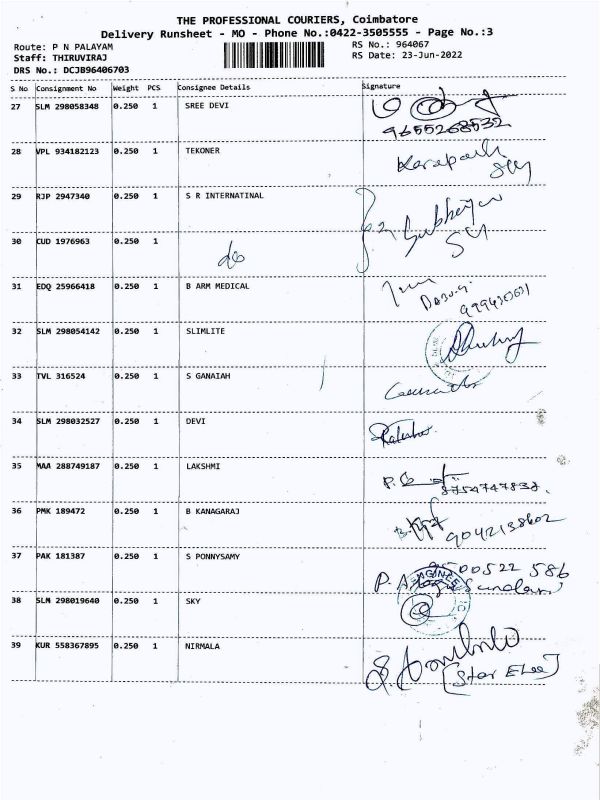 THE PROFESSIONAL COURIERS, Coimbatore
Delivery Runsheet - MO - Phone No.:0422-3505555 - Page No.:3
Route: P N PALAYAM RS No.: 964067
Staff: THIRUVIRAJ RS Date: 23-Jun-2022
DRS No.: DCJB96406703
S No Consignment No Weight PCS Consignee Details Signature
27 SLM 298058348 0.250 1 SREE DEVI
9655268532
28 VPL 934182123 0.250 1 TEKONER
29 RJP 2947340 0.250 1 S R INTERNATINAL
30 CUD 1976963 0.250 1
do
31 EDQ 25966418 0.250 1 B ARM MEDICAL
32 SLM 298054142 0.250 1 SLIMLITE
33 TVL 316524 0.250 1 S GANAIAH
34 SLM 298032527 0.250 1 DEVI
35 MAA 288749187 0.250 1 LAKSHMI
8754747838.
36 PMK 189472 0.250 1 B KANAGARAJ
9042138602
37 PAK 181387 0.250 1 S PONNYSAMY
38 SLM 298019640 0.250 1 SKY
39 KUR 558367895 0.250 1 NIRMALA